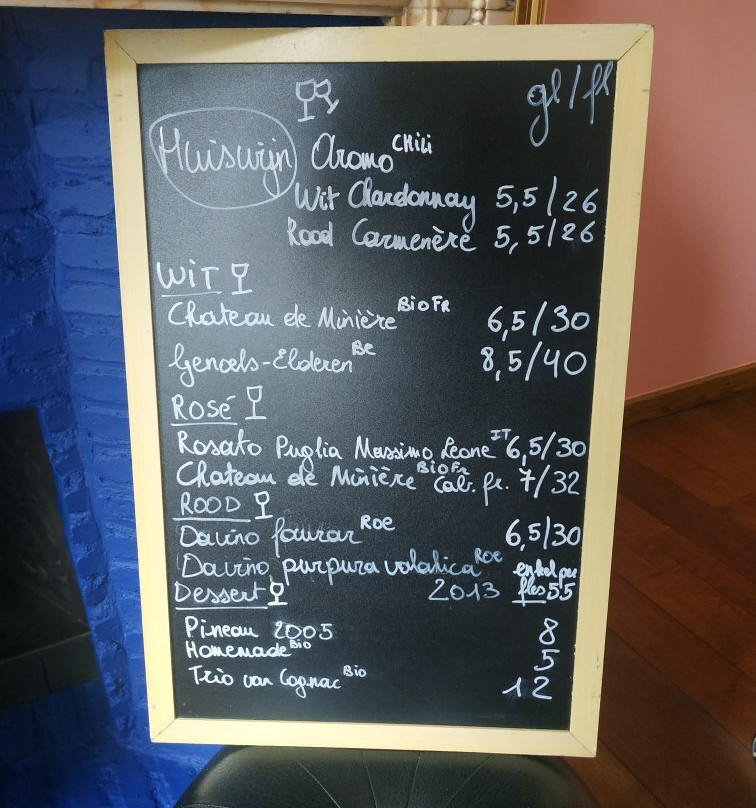 gl/fl
Huiswijn Aromo CHili
Wit Chardonnay 5,5/26
Rood Carmenère 5,5/26
WiT
Chateau de Minière BioFR 6,5/30
Genoels-Elderen Be 8,5/40
Rosé
Rosato Puglia Massimo Leone IT 6,5/30
Chateau de Minière BioFr Cab. fr. 7/32
ROOD
Davino faurar Roe 6,5/30
Davino purpura valahica Roe enkel per
Dessert 2013 fles 55
Pineau 2005 8
Homemade Bio 5
Trio van Cognac Bio 12